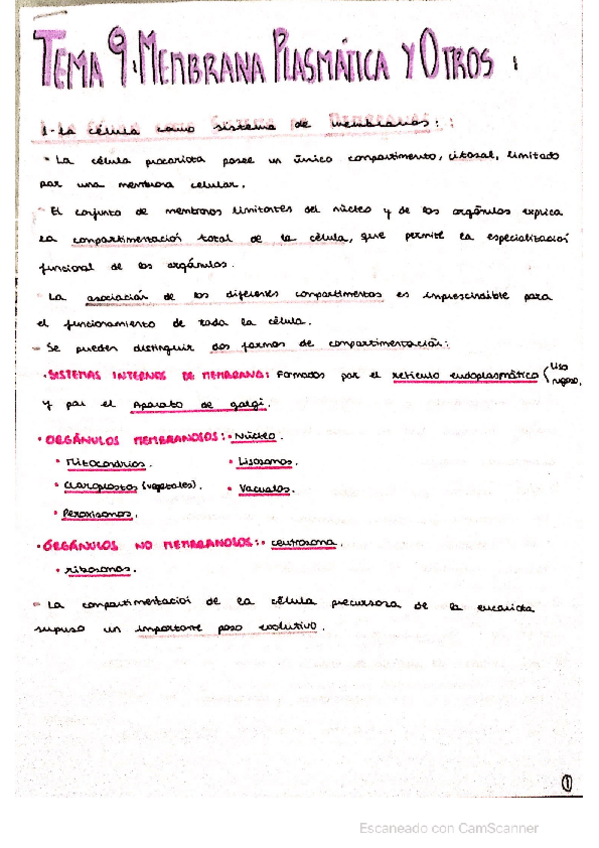 TEMA 9: MEMBRANA PLASMÁTICA Y OTROS :
1- La célula como sistema de membranas:
- La célula procariota posee un único compartimento, citosol, limitado
por una membrana celular.
- El conjunto de membranas limitantes del núcleo y de los orgánulos explica
la compartimentación total de la célula, que permite la especialización
funcional de los orgánulos.
- La asociación de los diferentes compartimentos es imprescindible para
el funcionamiento de toda la célula.
- Se pueden distinguir dos formas de compartimentación:
· SISTEMAS INTERNOS DE MEMBRANA: Formados por el retículo endoplasmático (liso
rugoso,
y por el Aparato de golgi.
· ORGÁNULOS MEMBRANOSOS: · Núcleo.
· Mitocondrias. · Lisosomas.
· Cloroplastos (vegetales). · Vacuolas.
· Peroxisomas.
· ÓRGÁNULOS NO MEMBRANOSOS: · centrosoma.
· ribosomas.
- La compartimentación de la célula precursora de la eucariota
supuso un importante paso evolutivo.
1
Escaneado con CamScanner